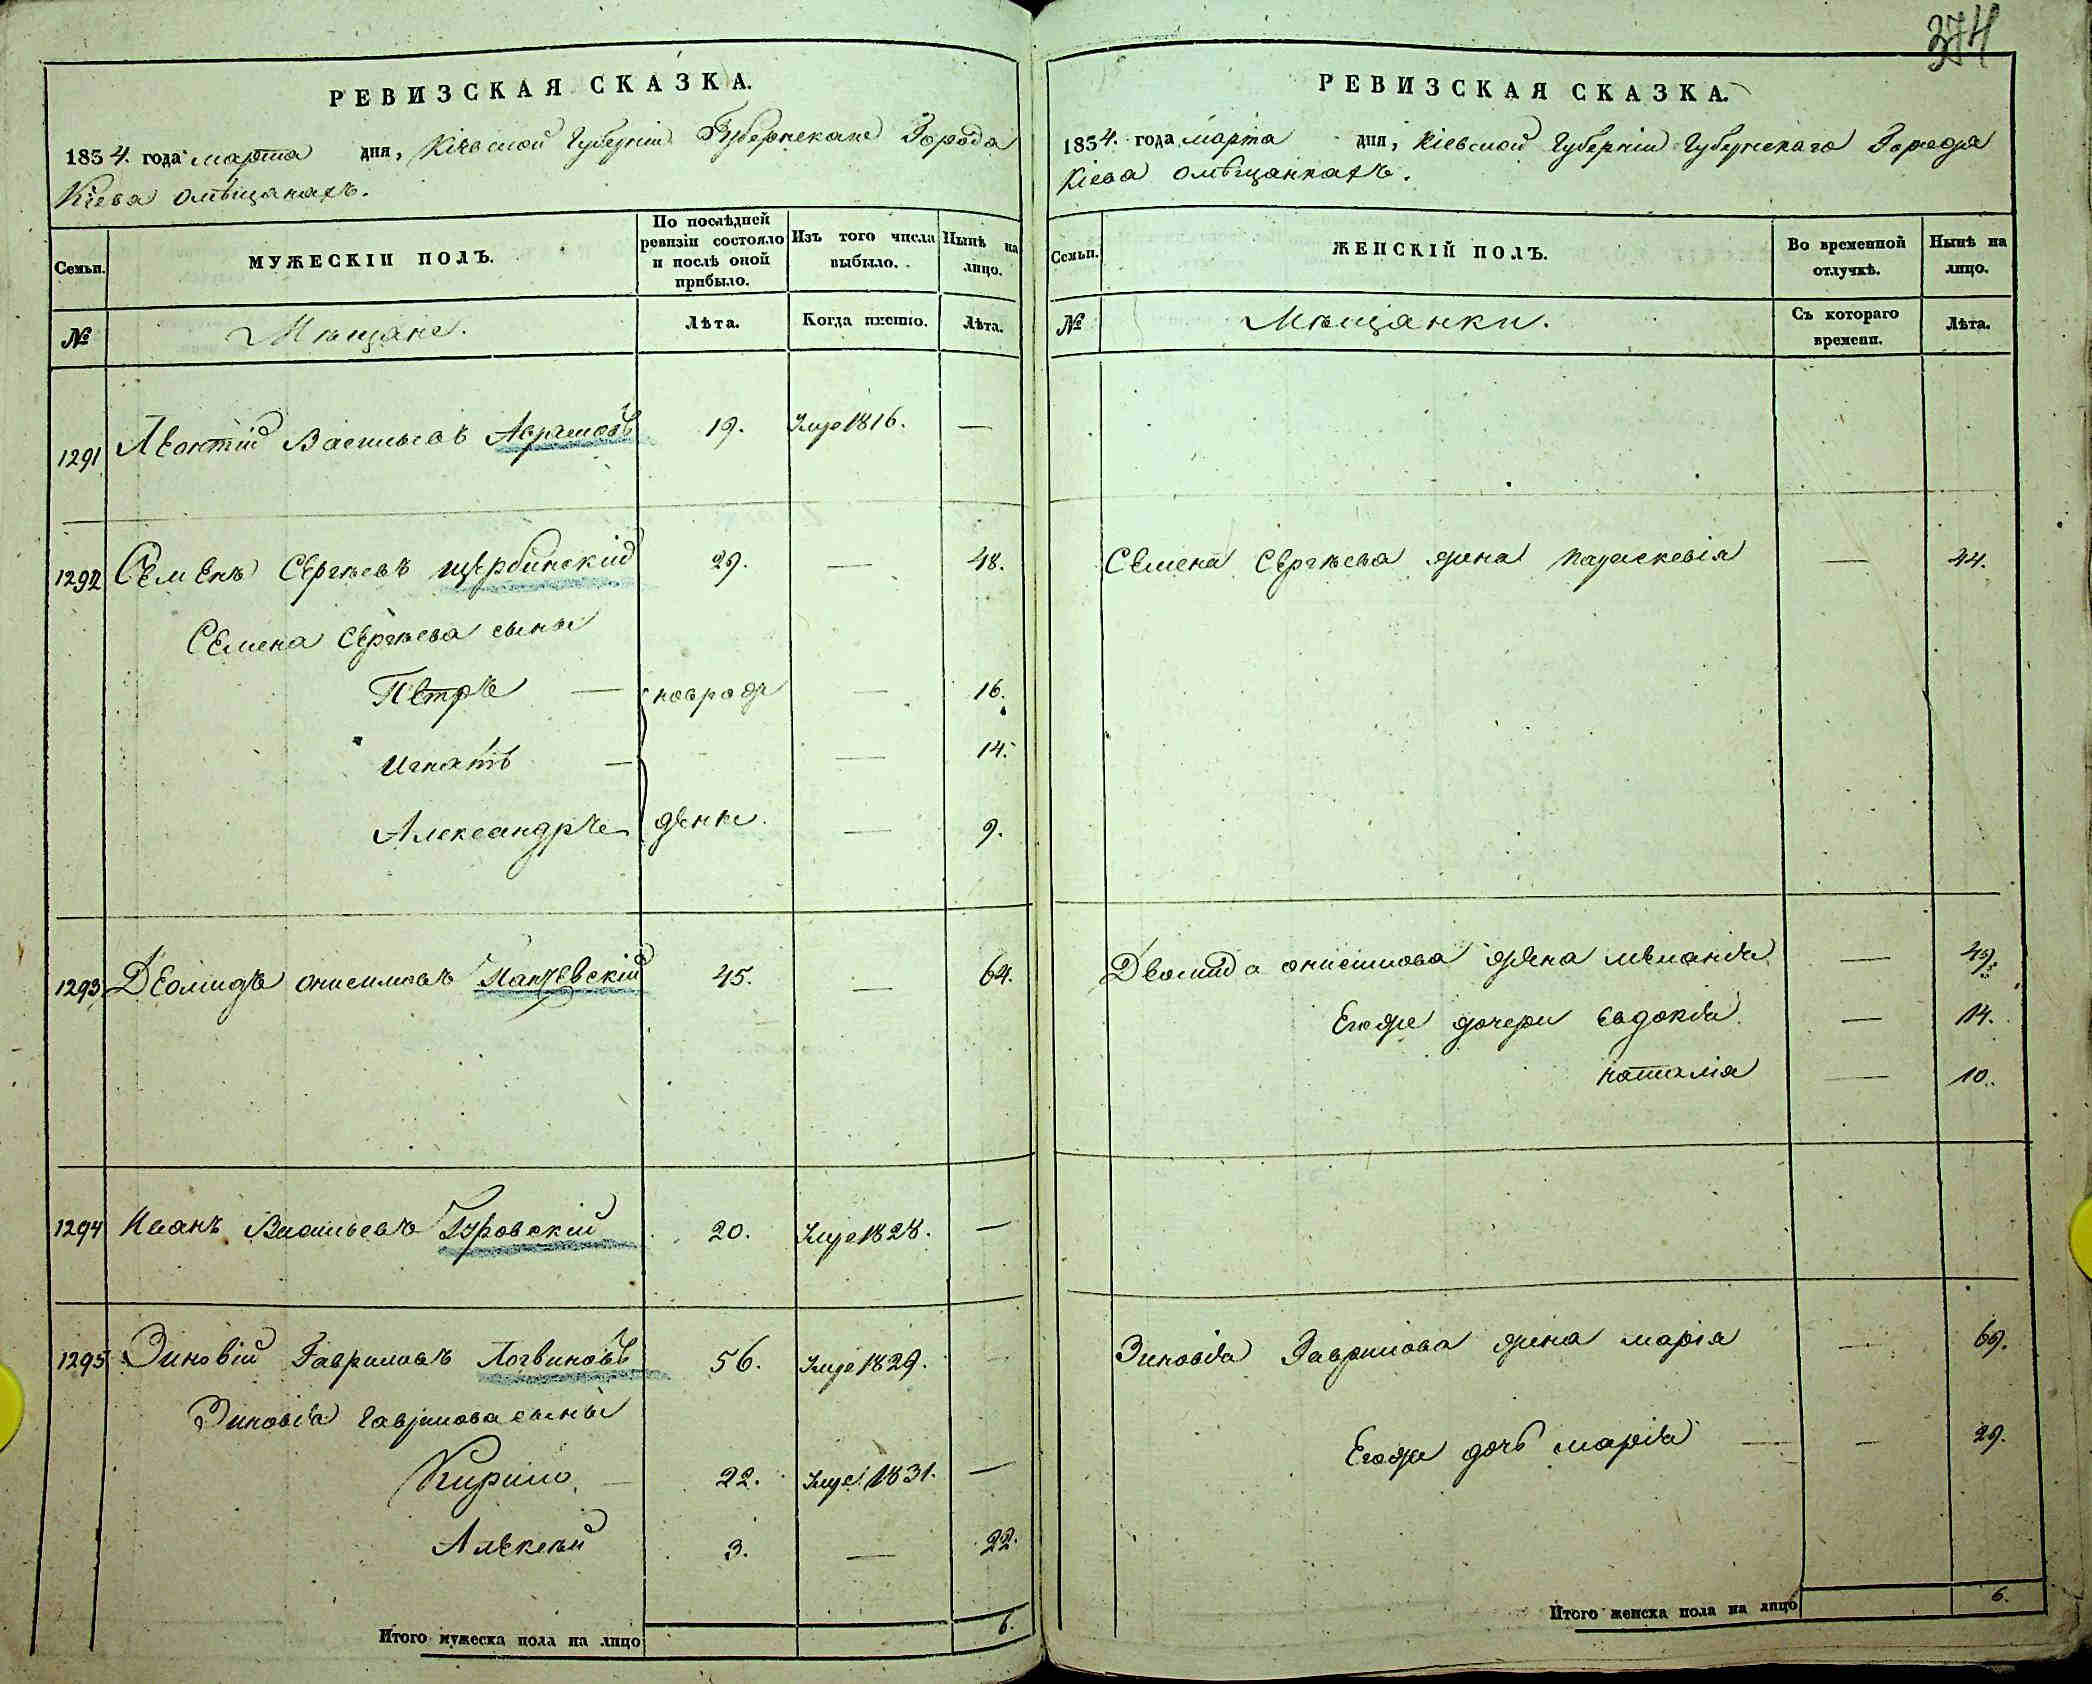 374
РЕВИЗСКАЯ СКАЗКА.
1854. года марта дня, Кіевской Губерніи Губернскаго Города
Кіева о мѣщанахъ.
Семьи.
МУЖЕСКІЙ ПОЛЪ.
По послѣдней
ревизіи состояло
и послѣ оной
прибыло.
Изъ того числа
выбыло.
Нынѣ на
лицо.
№
Мѣщане.
Лѣта.
Когда именно.
Лѣта.
1291 Леонтій Васильевъ 19. 1816. —
1292 Семенъ Сергѣевъ Щербинскій 29. — 48.
Семена Сергѣева сыны
Петръ — новорож — 16.
Игнатъ — — 14.
Александръ денные — 9.
1293 Деомидъ Онисимовъ 45. — 64.
1294 Иванъ Васильевъ Гуровскій 20. 1828. —
1295 Зиновій Гавриловъ Логвиновъ 56. 1829. —
Зиновія Гаврилова сыны
Кирило — 22. 1831. —
Алексѣй 3. — 22.
Итого мужеска пола на лицо 6.
РЕВИЗСКАЯ СКАЗКА.
1854. года марта дня, Кіевской Губерніи Губернскаго Города
Кіева о мѣщанкахъ.
Семьи.
ЖЕНСКІЙ ПОЛЪ.
Во временной
отлучкѣ.
Нынѣ на
лицо.
№
Мѣщанки.
Съ котораго
времени.
Лѣта.
Семена Сергѣева жена Параскевія — 44.
Деомида Онисимова жена Меланія — 49.
Егоже дочери Евдокія — 14.
Наталія — 10.
Зиновія Гаврилова жена Марія — 69.
Егоже дочь Марія — — 29.
Итого женска пола на лицо 6.